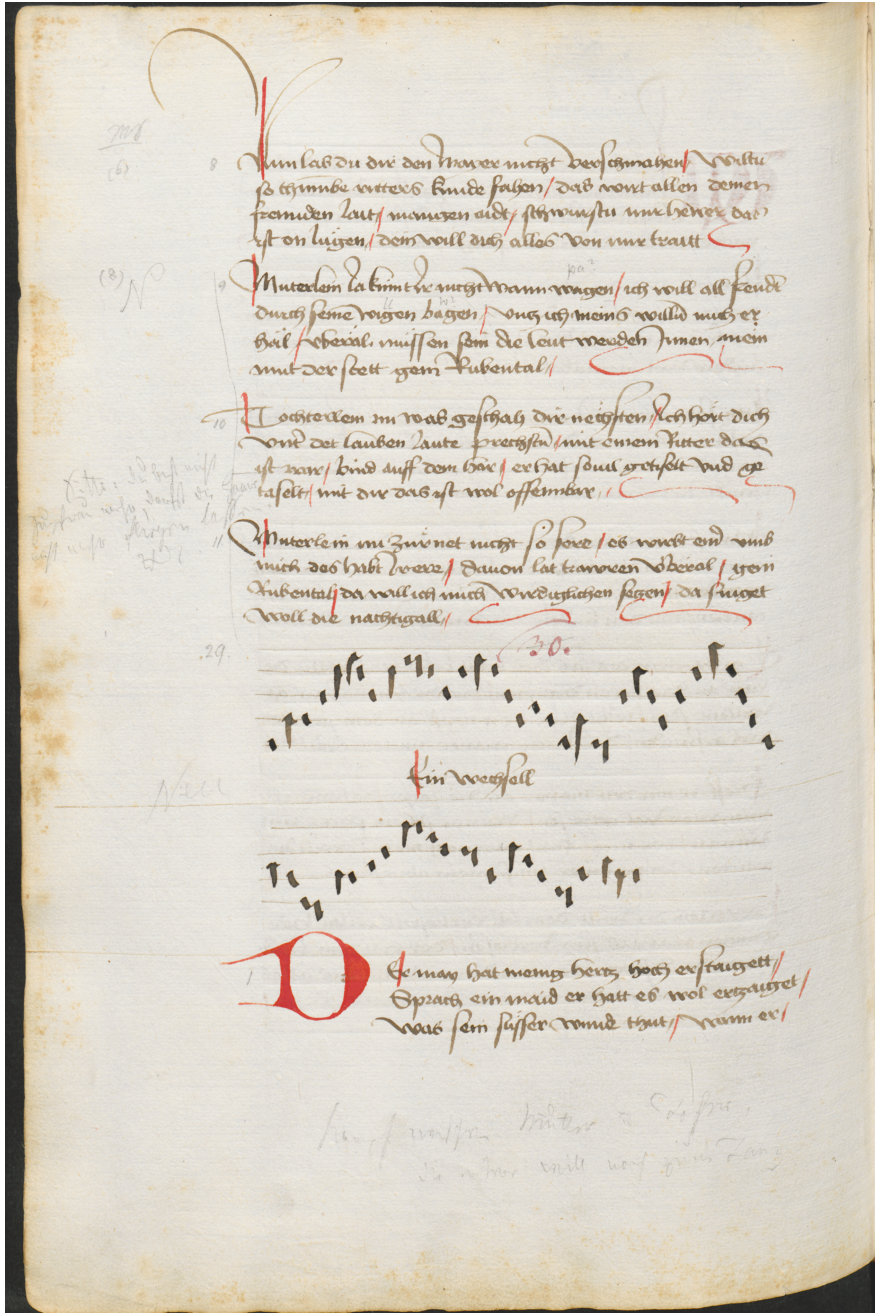 8 Nun las du dir den Mayer nicht verschmahen / Wiltu
so thumbe ritters kunde fahen / das wirt allen deinen
freunden lait / manigen aidt / schwurstu mir hewer das
ist on lugen / dein will dich alles von mir traitt
9 Muterlein la kumt Ir nicht wann wagen / ich will all frende
durch seine wigen bagen / Untz ich meins willn mich er
hol / vberal mussen sein die leut werden Innen mein
mut der stett gein Rubental /
10 Tochterlein nu was geschah dir nechsten / Ich hort dich
vnter der lauben laute prechsten / mit einem Ritter das
ist war / bind auff dein har / er hat souil getiselt vnd ge
taselt / mit dir das ist wol offennbar
11 Muterlein nu zurnet nicht so sere / es wirbt einer vmb
mich des habt Ir ere / dauon lat trawren vberal / gein
Rubental / da will ich mich wirdigclichen segen / da singet
woll die nachtigall /
29 30.
Ein wechsell
1 Der may hat menig hertz hoch erstaigett /
Sprach ein maid er hatt es wol ertzaiget /
was sein susser wunne thut / wann er /